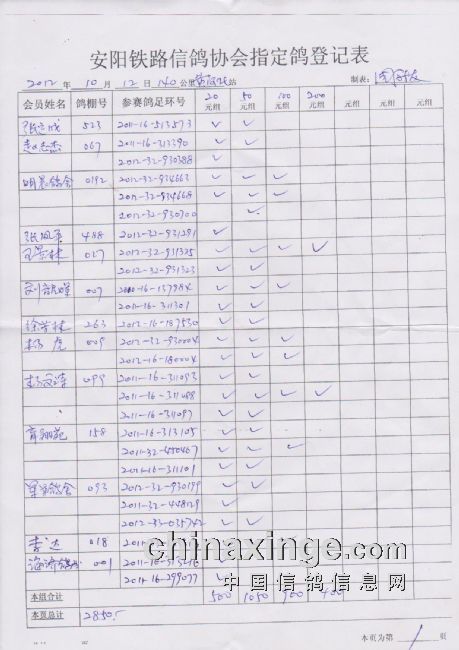 安阳铁路信鸽协会指定鸽登记表
2012 年 10 月 12 日 140 公里 站 制表:
会员姓名 鸽棚号 参赛鸽足环号 20元组 50元组 100元组 200元组 元组 元组 元组
523 2011-16-513573 ✓ ✓
赵志杰 067 2011-16-313390 ✓ ✓
2012-32-930388 ✓
明晨鸽舍 0192 2012-32-934663 ✓ ✓ ✓
2012-32-934668 ✓ ✓ ✓
2012-32-930700 ✓
488 2012-32-931291 ✓
027 2012-32-931325 ✓ ✓ ✓ ✓
2012-32-931323 ✓ ✓
007 ✓ ✓ ✓
2011-16-311301 ✓ ✓
263 2012-16-187530 ✓ ✓
杨虎 009 2012-32-930004 ✓ ✓ ✓
2012-16-180004 ✓ ✓ ✓
099 2011-16-311093 ✓ ✓
2011-16-311088 ✓ ✓ ✓ ✓
2011-16-311097 ✓ ✓
158 2011-16-313105 ✓ ✓
2011-32-450467 ✓ ✓ ✓
2011-16-311101 ✓ ✓
093 2012-32-930199 ✓ ✓
2011-32-448129 ✓
2012-32-035742 ✓ ✓
李达 018
001
2011-16-299077 ✓
本组合计 500 1050 900 400
本页总计 2850.-
本页为第 1 页
chinaxinge.com
中国信鸽信息网